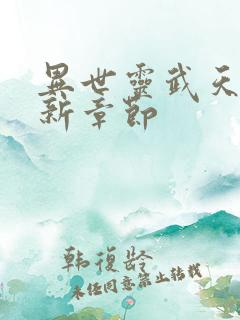 異世靈武天
新章節
韩復龄
未经同意禁止转载